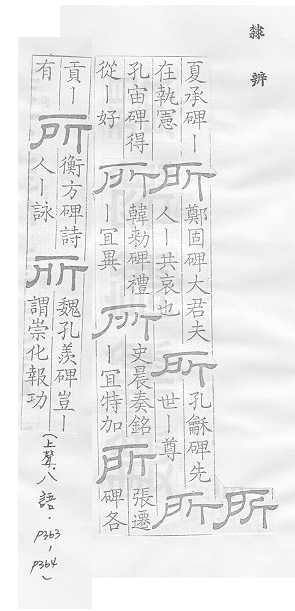 隸辨
所
夏承碑ー
在執憲
所
鄭固碑大君夫
人ー共哀也
所
孔龢碑先
世ー尊
所
孔宙碑得
從ー好
所
韓勑碑禮
ー宜異
所
史晨奏銘
ー宜特加
所
張遷
碑各
貢ー
有
所
衡方碑詩
人ー詠
所
魏孔羨碑豈ー
謂崇化報功
(上聲.八語.P363-P364)